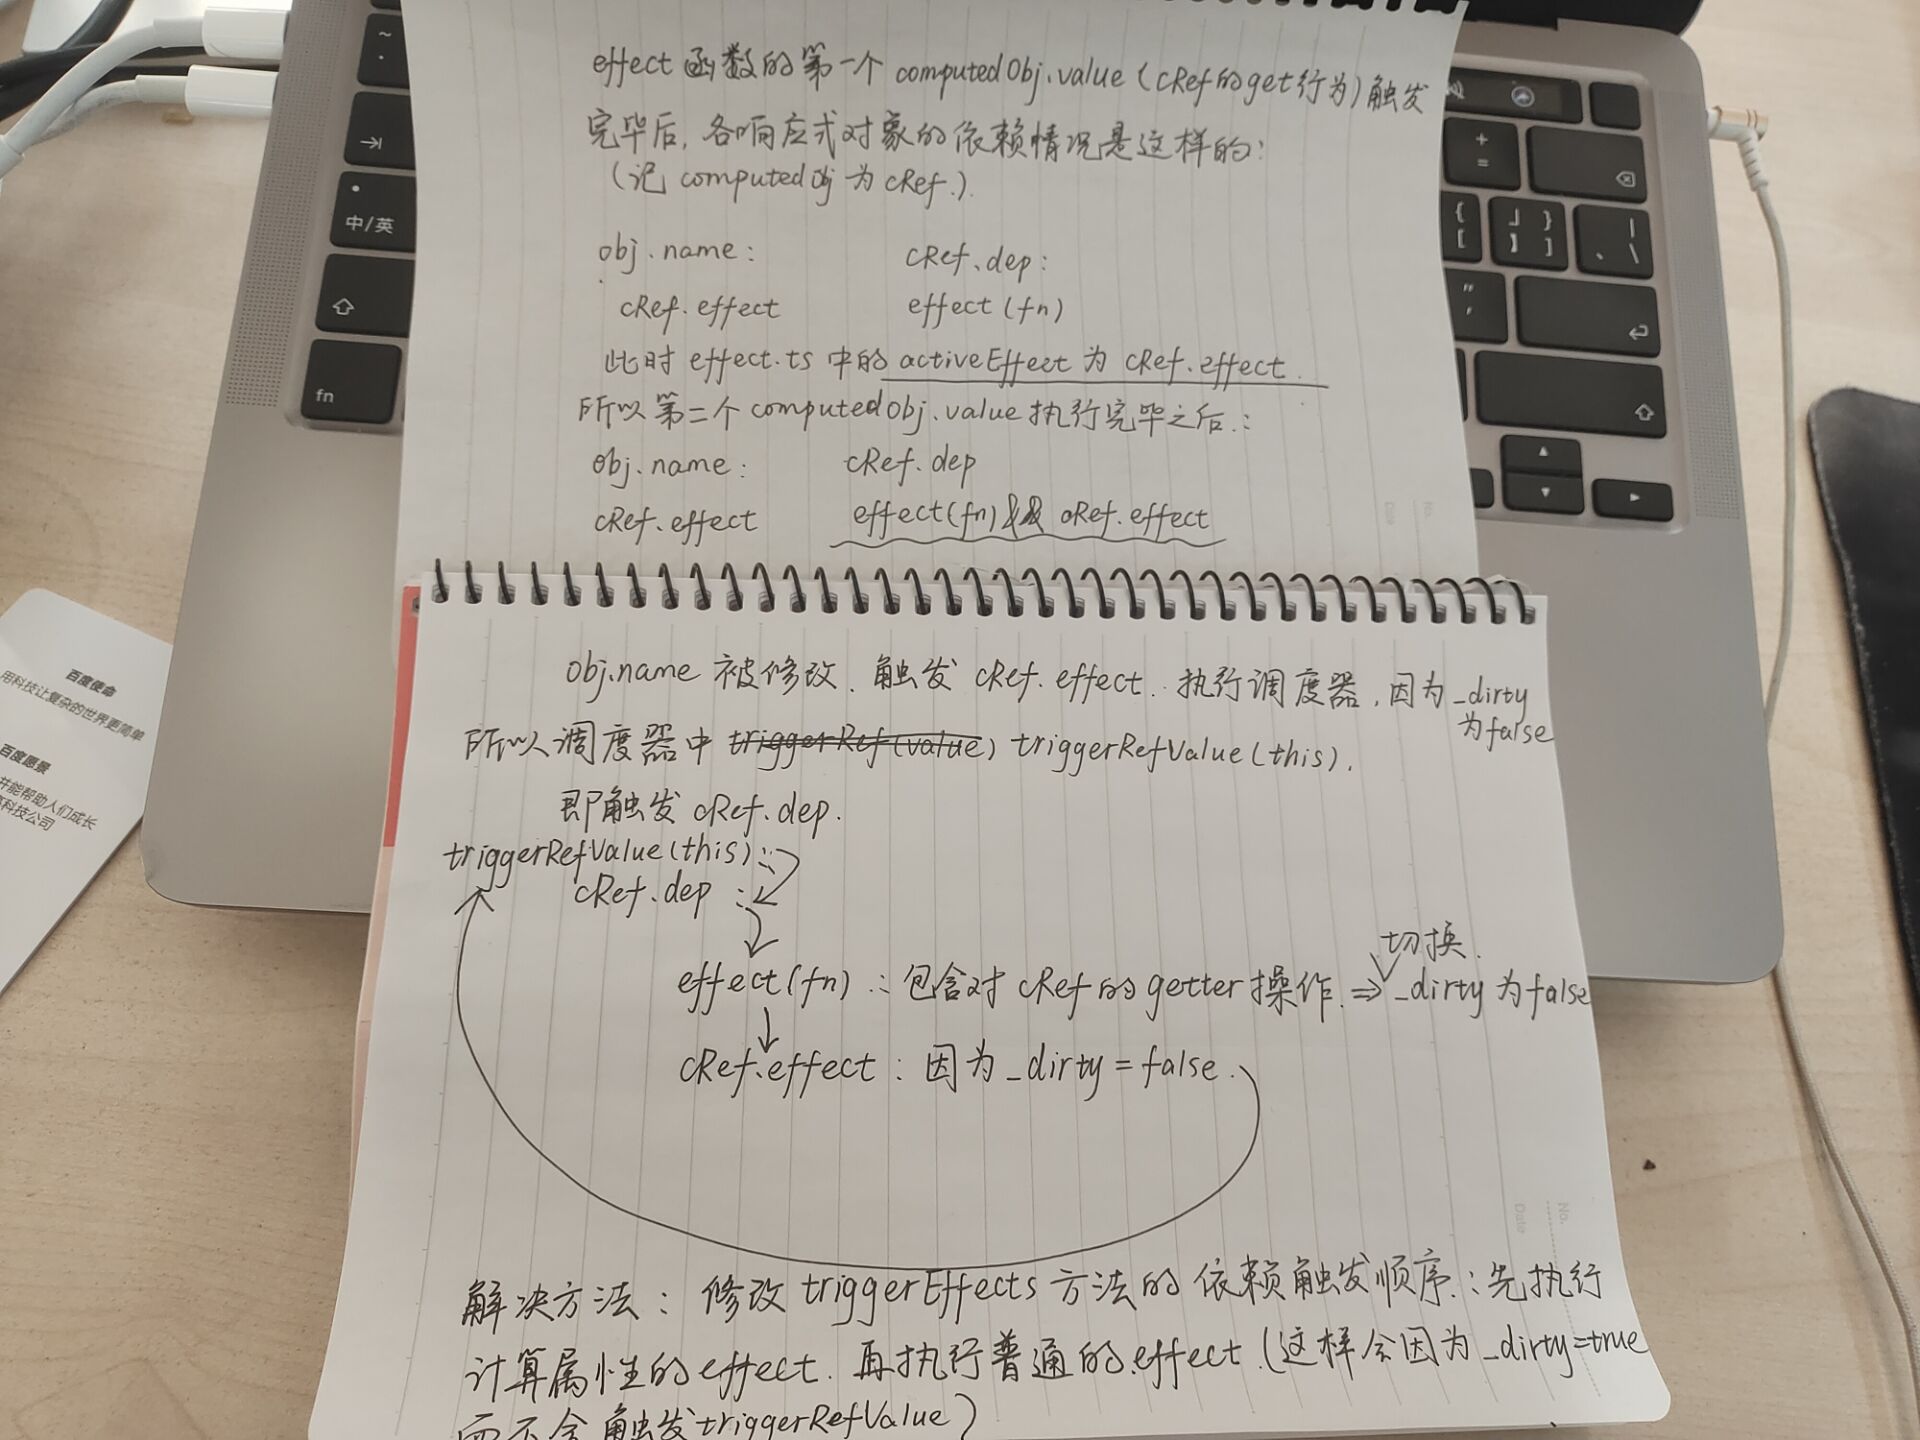 effect函数的第一个computedObj.value(cRef的get行为)触发
完毕后,各响应式对象的依赖情况是这样的:
(记computedObj为cRef.).
obj.name: cRef.dep:
cRef.effect effect(fn)
此时effect.ts中的activeEffect为cRef.effect.
所以第二个computedObj.value执行完毕之后.:
obj.name: cRef.dep
cRef.effect effect(fn) && cRef.effect
obj.name被修改.触发cRef.effect.执行调度器,因为_dirty
为false
所以调度器中triggerRef(value) triggerRefValue(this).
即触发cRef.dep.
triggerRefValue(this):
cRef.dep:
切换.
effect(fn):包含对cRef的getter操作.⇒_dirty为false
cRef.effect:因为_dirty=false.
解决方法:修改triggerEffects方法的依赖触发顺序.:先执行
计算属性的effect.再执行普通的effect.(这样会因为_dirty=true
而不会触发triggerRefValue)
~
中/英
fn
+
=
{
[
}
]
|
\
"
'
百度使命
用科技让复杂的世界更简单
百度愿景
并能帮助人们成长
高科技公司
No.
Date
No.
Date